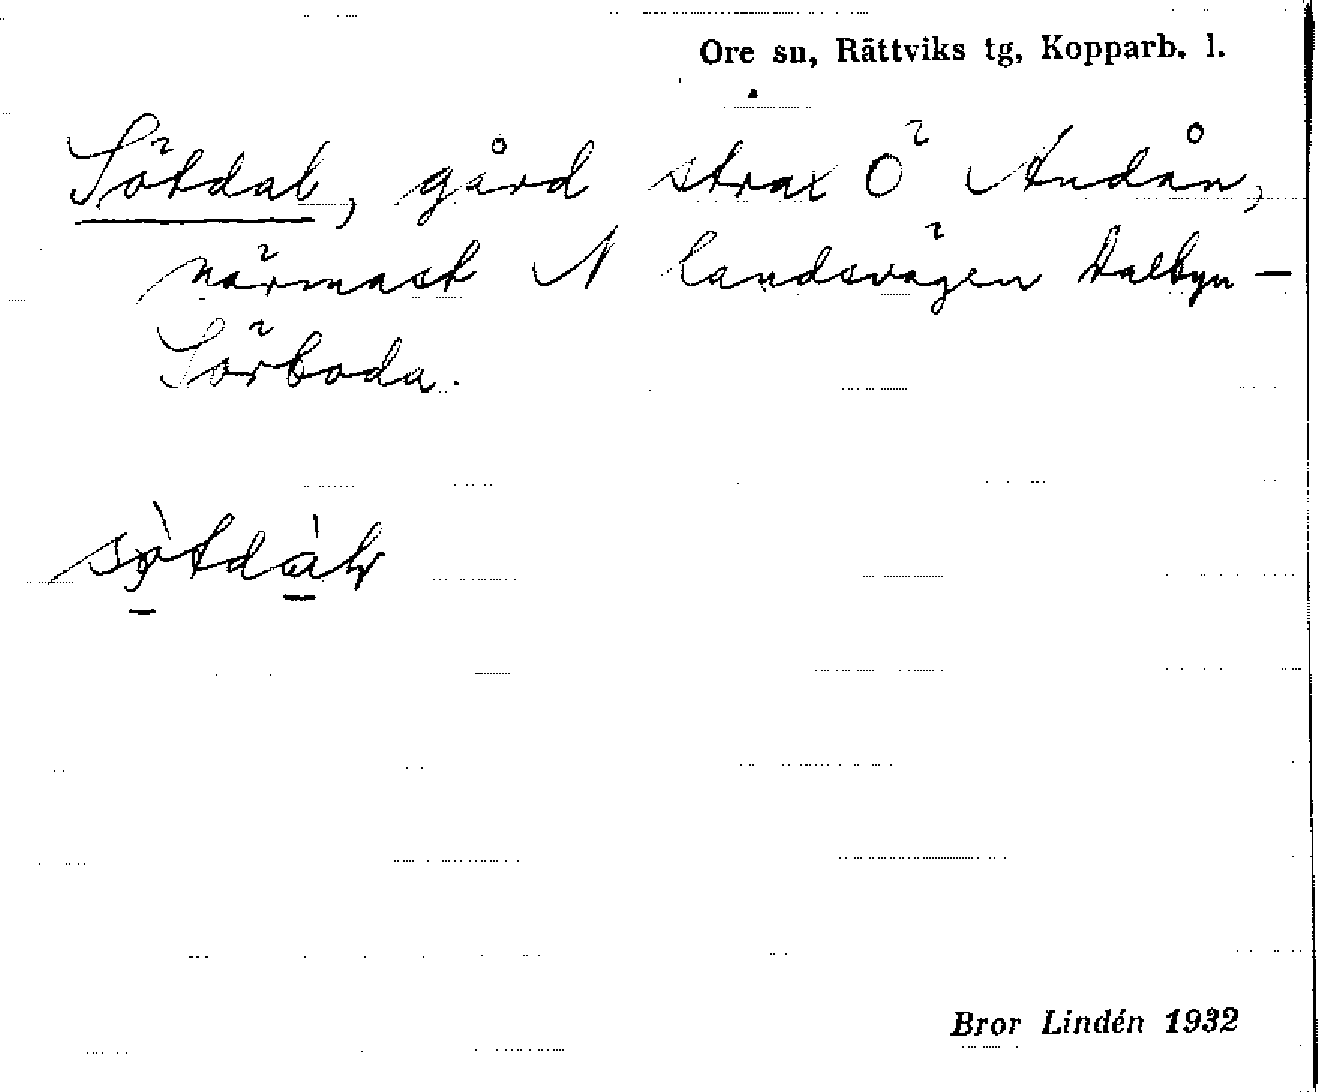 Ore sn, Rättviks tg, Kopparb. l.
Sötdal, gård strax Ö Andån,
närmast N landsvägen Dalbyn –
Sörboda.
Bror Lindén 1932